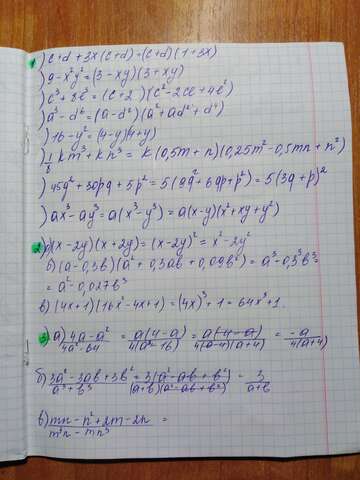 1) c+d+3x(c+d)=(c+d)(1+3x)
) 9-x²y²=(3-xy)(3+xy)
) c³+8e³=(c+2)(c²-2ce+4e²)
) a³-d⁶=(a-d²)(a²+ad²+d⁴)
) 16-y²=(4-y)(4+y)
) 1/8 km³+kn³= k(0,5m+n)(0,25m²-0,5mn+n²)
) 45q²+30pq+5p²=5(9q²+6qp+p²)=5(3q+p)²
) ax³-ay³=a(x³-y³)=a(x-y)(x²+xy+y²)
2) а)(x-2y)(x+2y)=(x-2y)²=x²-2y²
б)(a-0,3b)(a²+0,3ab+0,09b²)=a³-0,3³b³=
=a²-0,027b³
в)(4x+1)(16x²-4x+1)=(4x)³+1=64x³+1.
3) а) 4a-a²/4a²-64 = a(4-a)/4(a²-16) = a(4-a)/4(a-4)(a+4) = -a/4(a+4)
б) 3a²-3ab+3b²/a³+b³ = 3(a²-ab+b²)/(a+b)(a²-ab+b²) = 3/a+b
в) mn-n²+2m-2n/m²n-mn³ =